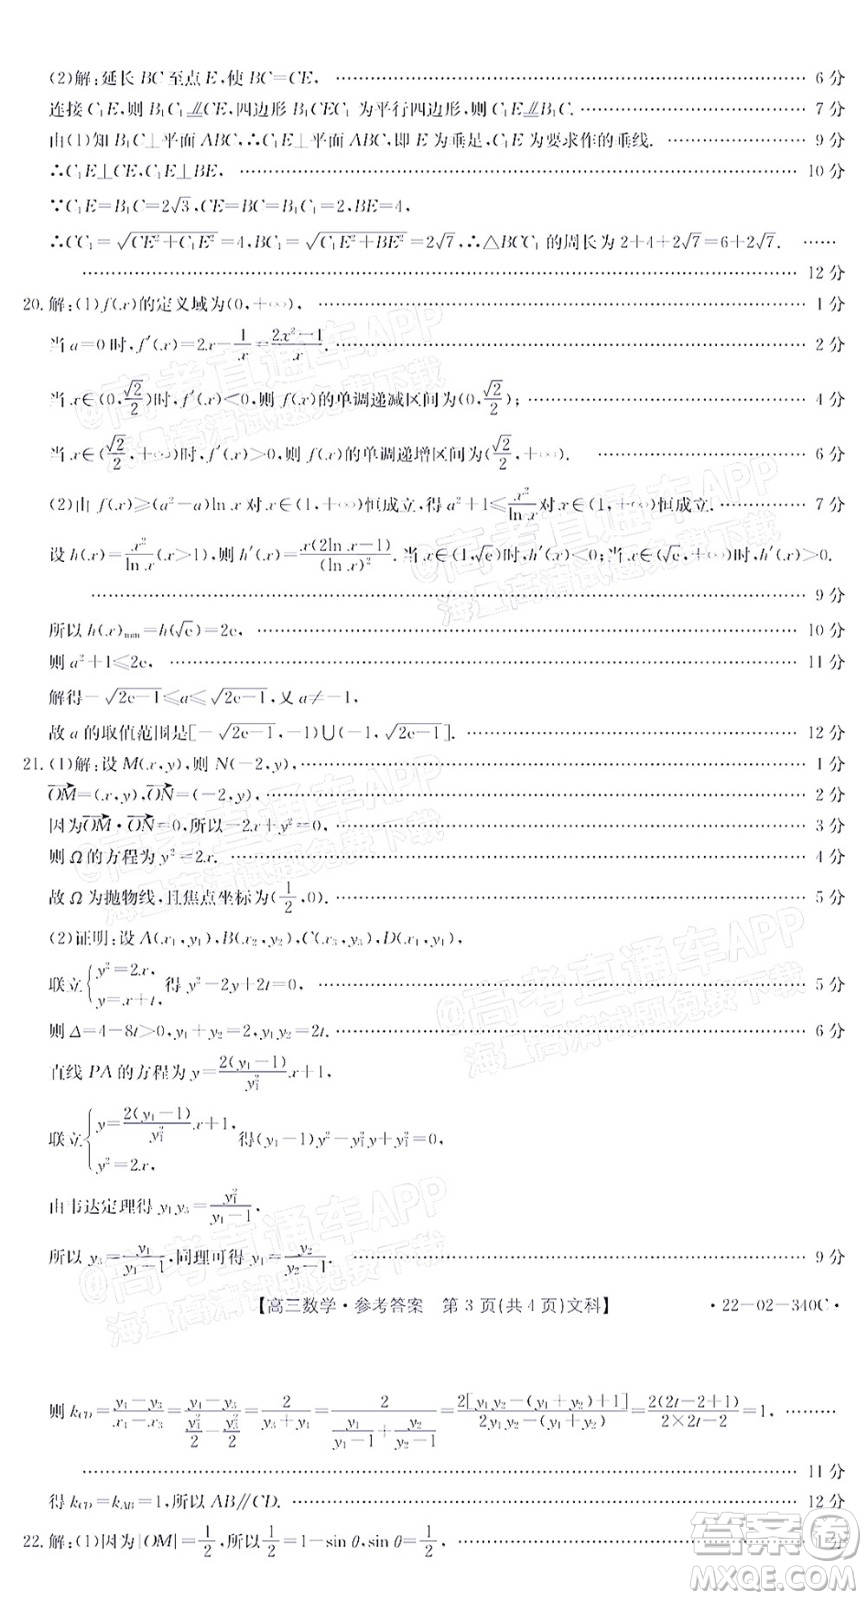 (2)解:延长 BC 至点 E,使 BC=CE, …… 6 分
连接 C₁E,则 B₁C₁∥CE,四边形 B₁CEC₁ 为平行四边形,则 C₁E∥B₁C. …… 7 分
由(1)知 B₁C⊥平面 ABC,∴C₁E⊥平面 ABC,即 E 为垂足,C₁E 为要求作的垂线. …… 9 分
∴C₁E⊥CE,C₁E⊥BE, …… 10 分
∵C₁E=B₁C=2√3,CE=BC=B₁C₁=2,BE=4,
∴CC₁=√(CE²+C₁E²)=4,BC₁=√(C₁E²+BE²)=2√7,∴△BCC₁ 的周长为 2+4+2√7=6+2√7. ……
…… 12 分
20. 解:(1)f(x)的定义域为(0,+∞), …… 1 分
当 a=0 时,f′(x)=2x-1/x=(2x²-1)/x. …… 2 分
当 x∈(0,√2/2)时,f′(x)<0,则 f(x)的单调递减区间为(0,√2/2); …… 4 分
当 x∈(√2/2,+∞)时,f′(x)>0,则 f(x)的单调递增区间为(√2/2,+∞). …… 6 分
(2)由 f(x)≥(a²-a)ln x 对 x∈(1,+∞)恒成立,得 a²+1≤x²/ln x 对 x∈(1,+∞)恒成立. …… 7 分
设 h(x)=x²/ln x(x>1),则 h′(x)=x(2ln x-1)/(ln x)². 当 x∈(1,√e)时,h′(x)<0;当 x∈(√e,+∞)时,h′(x)>0.
…… 9 分
所以 h(x)min=h(√e)=2e, …… 10 分
则 a²+1≤2e, …… 11 分
解得-√(2e-1)≤a≤√(2e-1),又 a≠-1,
故 a 的取值范围是[-√(2e-1),-1)∪(-1,√(2e-1)]. …… 12 分
21. (1)解:设 M(x,y),则 N(-2,y), …… 1 分
OM=(x,y),ON=(-2,y), …… 2 分
因为OM·ON=0,所以-2x+y²=0, …… 3 分
则 Ω 的方程为 y²=2x. …… 4 分
故 Ω 为抛物线,且焦点坐标为(1/2,0). …… 5 分
(2)证明:设 A(x₁,y₁),B(x₂,y₂),C(x₃,y₃),D(x₄,y₄),
联立{y²=2x, y=x+t, 得 y²-2y+2t=0, …… 5 分
则 Δ=4-8t>0,y₁+y₂=2,y₁y₂=2t. …… 6 分
直线 PA 的方程为 y=2(y₁-1)/y₁² x+1,
联立{y=2(y₁-1)/y₁² x+1, y²=2x, 得(y₁-1)y²-y₁²y+y₁²=0,
由韦达定理得 y₁y₃=y₁²/(y₁-1),
所以 y₃=y₁/(y₁-1),同理可得 y₄=y₂/(y₂-1). …… 9 分
【高三数学·参考答案 第 3 页(共 4 页)文科】 ·22-02-340C·
则 k_CD=(y₄-y₃)/(x₄-x₃)=(y₄-y₃)/(y₄²/2-y₃²/2)=2/(y₃+y₄)=2/(y₁/(y₁-1)+y₂/(y₂-1))=2[y₁y₂-(y₁+y₂)+1]/(2y₁y₂-(y₁+y₂))=2(2t-2+1)/(2×2t-2)=1, ……
…… 11 分
得 k_CD=k_AB=1,所以 AB∥CD. …… 12 分
22. 解:(1)因为|OM|=1/2,所以1/2=1-sin θ,sin θ=1/2, …… 1 分
@高考直通车APP
海量高清试题免费下载
@高考直通车APP
海量高清试题免费下载
@高考直通车APP
海量高清试题免费下载
@高考直通车APP
海量高清试题免费下载
@高考直通车APP
海量高清试题免费下载
答案卷
MXQE.COM